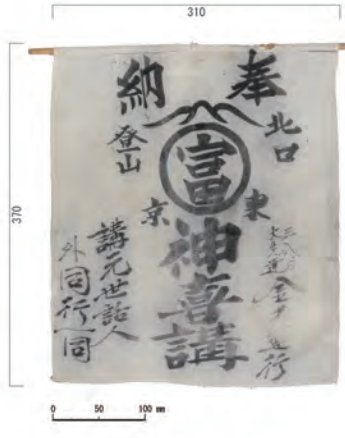 310
370
奉納
北口
登山
富
東京
神喜講
講元世話人
外同行一同
0 50 100 mm